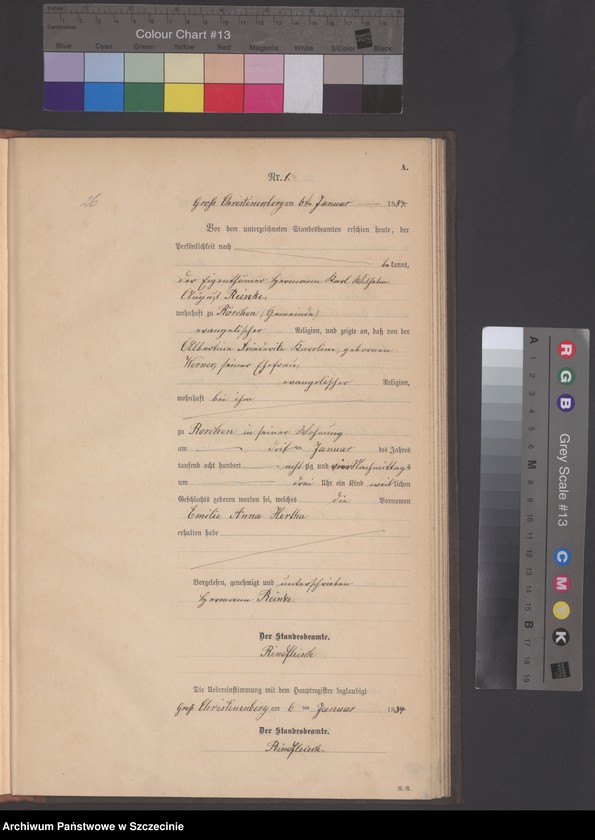 Colour Chart #13
Blue Cyan Green Yellow Red Magenta White 3/Color Black
A.
Nr. 1.
26
Groß Christinenberg am 6ten Januar 1884.
Vor dem unterzeichneten Standesbeamten erschien heute, der
Persönlichkeit nach
bekannt,
der Eigenthümer Hermann Karl Wilhelm
August Reinke,
wohnhaft zu Rörchen (Gemeinde)
evangelischer Religion, und zeigte an, daß von der
Albertine Friederike Karoline, geborenen
Werner, seiner Ehefrau,
evangelischer Religion,
wohnhaft bei ihm
zu Rörchen in seiner Wohnung
am drit ten Januar des Jahres
tausend acht hundert acht zig und vier Nachmittags
um drei Uhr ein Kind weiblichen
Geschlechts geboren worden sei, welches die Vornamen
Emilie Anna Hertha
erhalten habe
Vorgelesen, genehmigt und unterschrieben
Hermann Reinke.
Der Standesbeamte.
Rindfleisch
Die Uebereinstimmung mit dem Hauptregister beglaubigt
Groß Christinenberg am 6 ten Januar 1884.
Der Standesbeamte.
Rindfleisch.
Grey Scale #13
A M B
R G B C M Y K
Archiwum Państwowe w Szczecinie